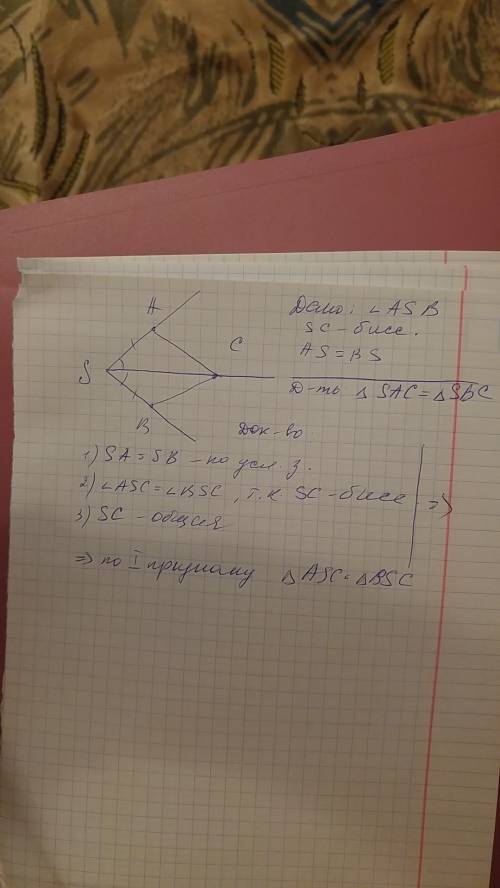 A
C
S
B
Дано: ∠ASB
SC - бисс.
AS = BS
Д-ть △SAC = △SBC
Док-во
1) SA = SB - по усл. з.
2) ∠ASC = ∠BSC, т.к SC - бисс
3) SC - общая
=>
=> по I признаку △ASC = △BSC